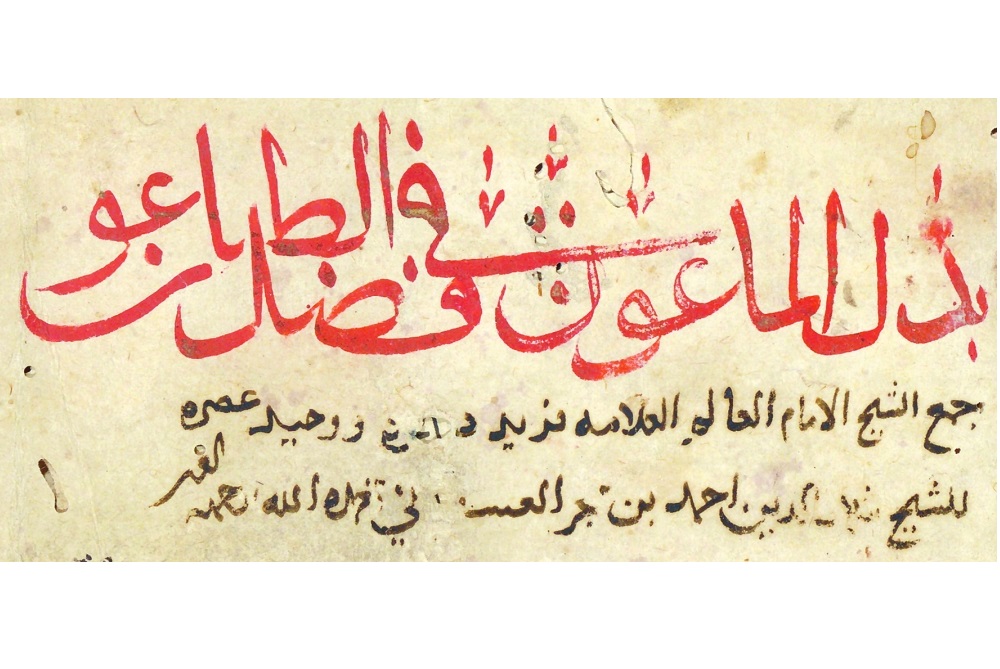 بذل الماعون في فضل الطاعون
جمع الشيخ الامام العالم العلامه فريد دهره ووحيد عصره
للشيخ شهاب الدين احمد بن حجر العسقلاني تغمده الله برحمته